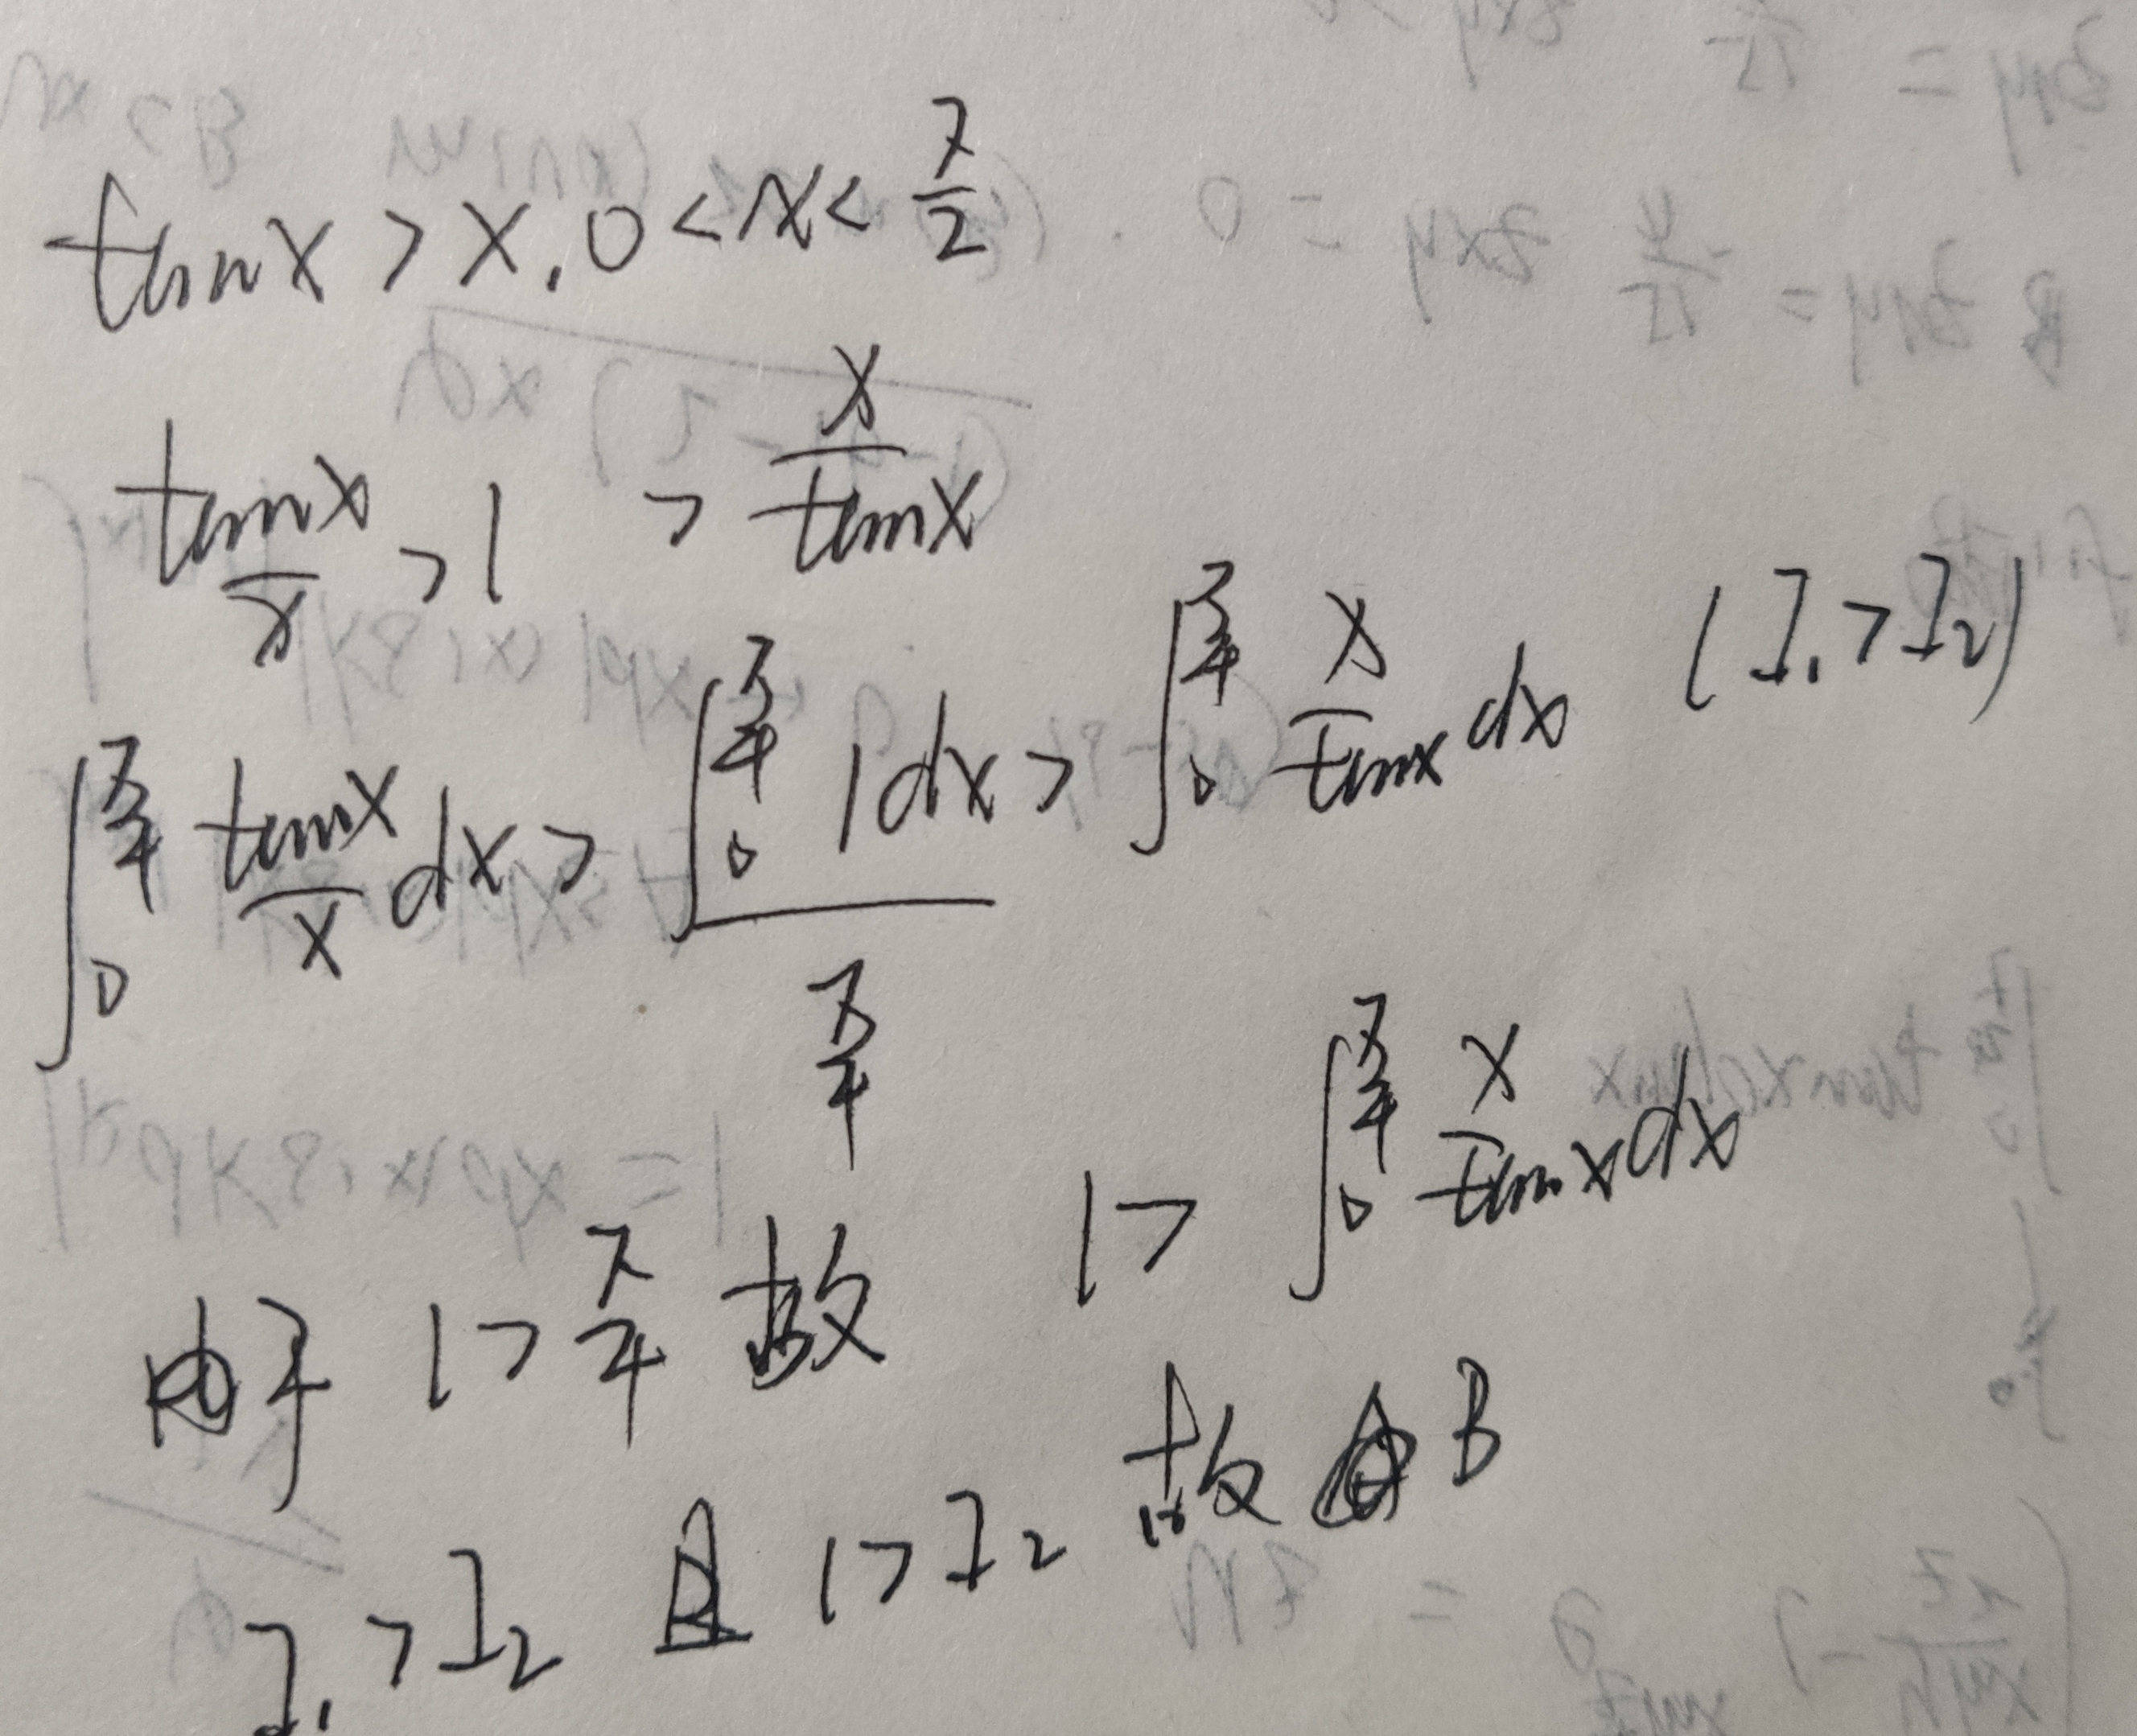 tanx > x, 0 < x < π/2
tanx/x > 1 > x/tanx
∫₀^(π/4) tanx/x dx > ∫₀^(π/4) 1dx > ∫₀^(π/4) x/tanx dx (I₁ > I₂)
π/4
由于 1 > π/4 故 1 > ∫₀^(π/4) x/tanx dx
I₁ > I₂ 且 1 > I₂ 故 B